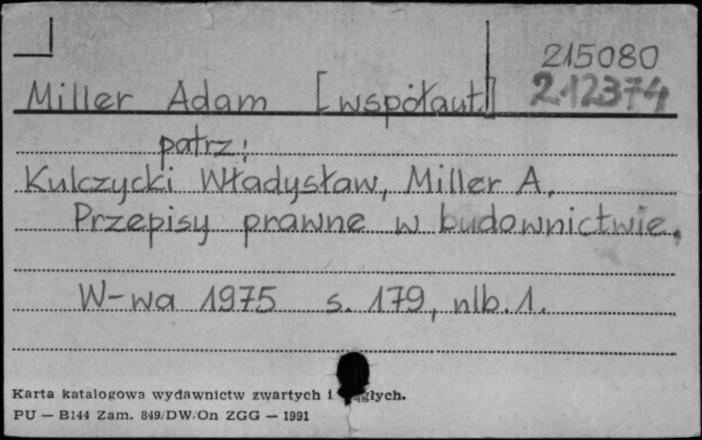 215080
Miller Adam [współaut] 212374
patrz:
Kulczycki Władysław, Miller A.
Przepisy prawne w budownictwie.
W-wa 1975 s. 179, nlb. 1.
Karta katalogowa wydawnictw zwartych i
PU — B144 Zam. 849/DW/On ZGG — 1991